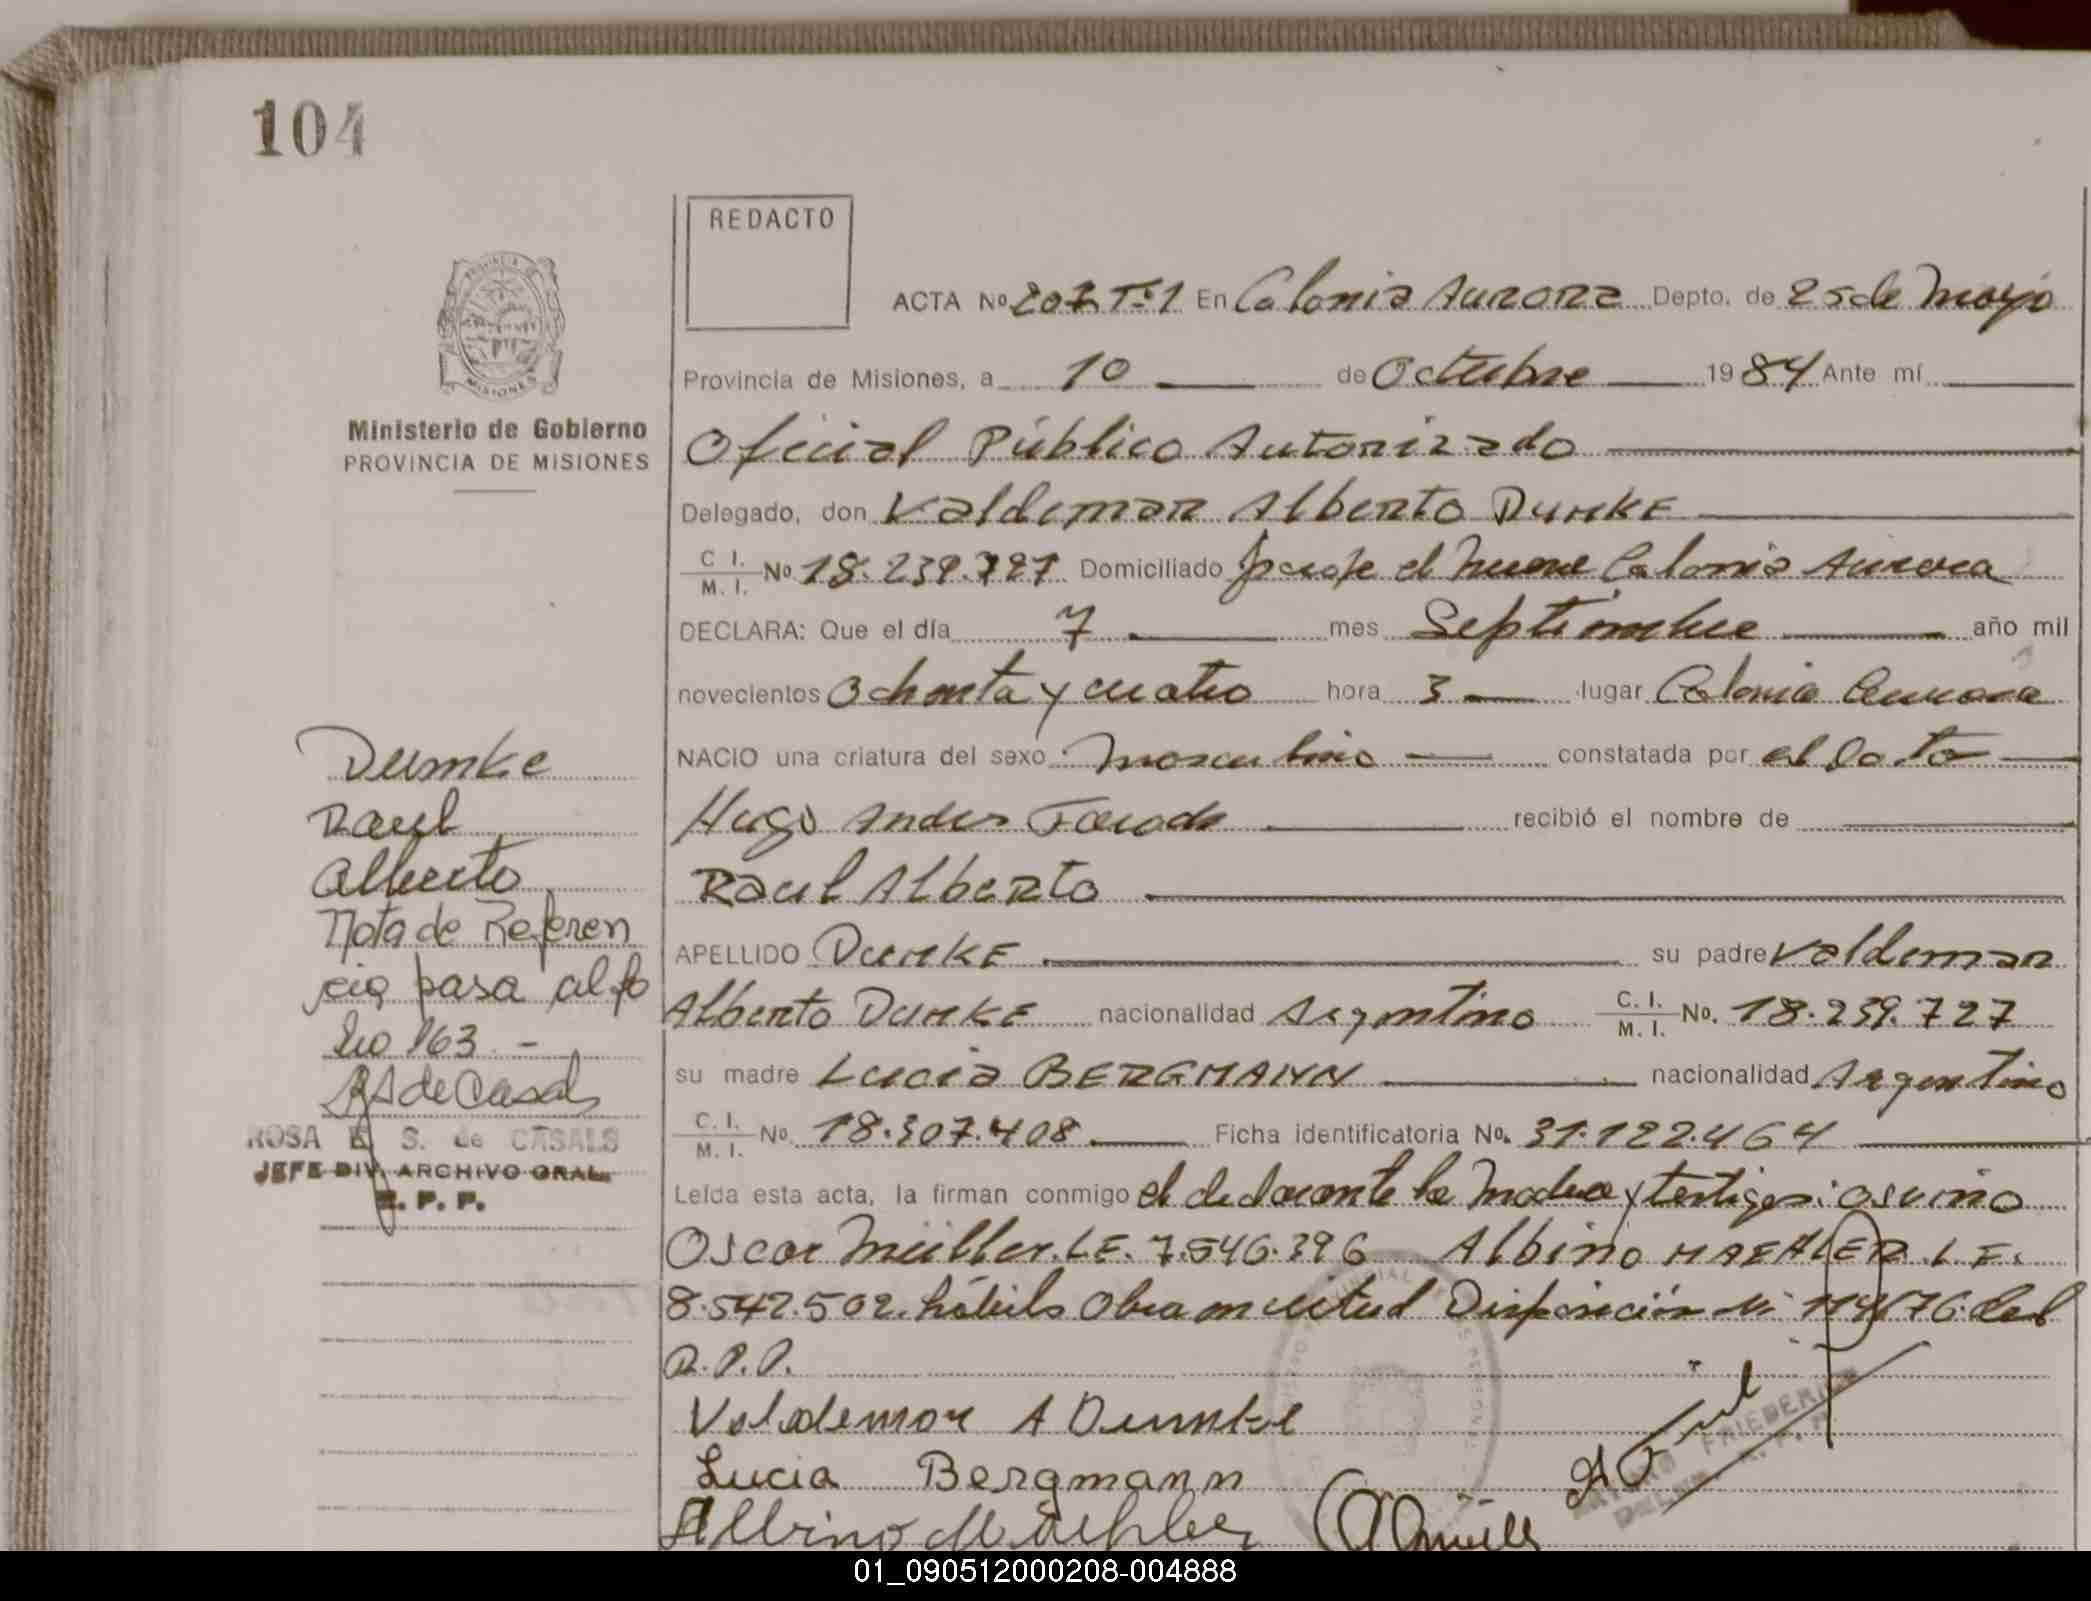 104
REDACTO
ACTA No 207 T:1 En Colonia Aurora Depto. de 25 de Mayo
Provincia de Misiones, a 10 de Octubre 1984 Ante mí
Ministerio de Gobierno
PROVINCIA DE MISIONES
Oficial Público Autorizado
Delegado, don Valdemar Alberto DUMKE
C. I. / M. I. No 18.239.727 Domiciliado Colonia Aurora
DECLARA: Que el día 7 mes Septiembre año mil
novecientos Ochenta y cuatro hora 3 lugar Colonia Aurora
NACIO una criatura del sexo Masculino constatada por el Doctor
Hugo Andres recibió el nombre de
Raul Alberto
APELLIDO DUMKE su padre Valdemar
Alberto DUMKE nacionalidad Argentino C. I. / M. I. No. 18.239.727
su madre Lucia BERGMANN nacionalidad Argentino
C. I. / M. I. No. 18.307.408 Ficha identificatoria No. 31.122.464
Leída esta acta, la firman conmigo el declarante la Madre y testigos:
Oscar Müller. L.E. 7.546.396 Albino MAEHLER L.E.
8.542.502. hábiles Obra en virtud Disposición del
R.P.P.
Valdemar A Dumke
Lucia Bergmann
Albino Maehler
FRIEDERICH
Dumke
Raul
Alberto
Nota de Referen
cia pasa al fo
lio 163 -
RS de Casals
ROSA E. S. de CASALS
JEFE DIV. ARCHIVO GRAL.
R. P. P.
01_090512000208-004888